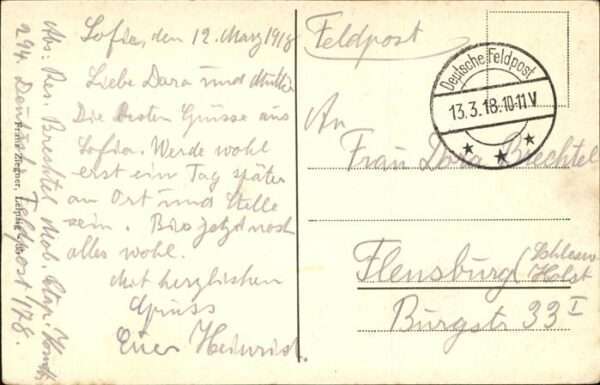 Sofia, den 12. März 1918
Liebe Dora und Mutter
Die besten Grüsse aus
Sofia. Werde wohl
erst ein Tag später
an Ort und Stelle
sein. Bis jetzt noch
alles wohl.
Mit herzlichen
Gruss
Euer Heinrich.
Abs: Res. Brechtel Mob. Etap. Komdt.
294. Deutsche Feldpost 178.
Franz Ziegner, Leipzig
Feldpost
Deutsche Feldpost
13.3.18.10-11V
An
Frau Dora Brechtel
Flensburg (Schlesw.
Holst
Burgstr 33 I